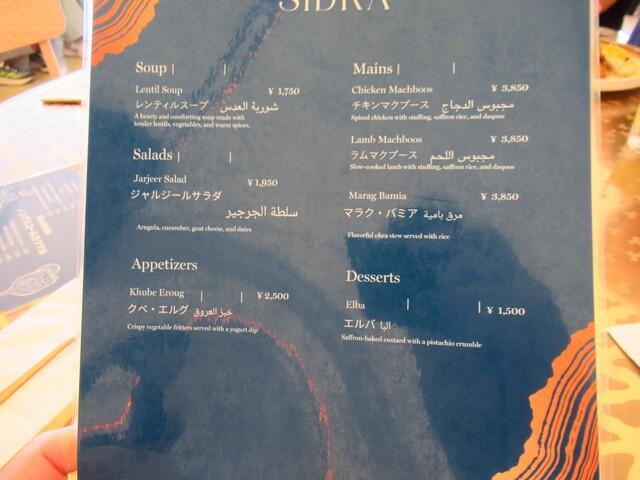 SIDRA
Soup
Lentil Soup ¥ 1,750
レンティルスープ شوربة العدس
A hearty and comforting soup made with
tender lentils, vegetables, and warm spices.
Salads
Jarjeer Salad ¥1,950
ジャルジールサラダ
سلطة الجرجير
Arugula, cucumber, goat cheese, and dates
Appetizers
Khube Eroug ¥ 2,500
クベ・エルグ خبز العروق
Crispy vegetable fritters served with a yogurt dip
Mains
Chicken Machboos ¥ 3,850
チキンマクブース مجبوس الدجاج
Spiced chicken with stuffing, saffron rice, and daqoos
Lamb Machboos ¥ 3,850
ラムマクブース مجبوس اللحم
Slow-cooked lamb with stuffing, saffron rice, and daqoos
Marag Bamia ¥ 3,850
マラク・バミア مرق بامية
Flavorful okra stew served with rice
Desserts
Elba ¥ 1,500
エルバ البا
Saffron-baked custard with a pistachio crumble